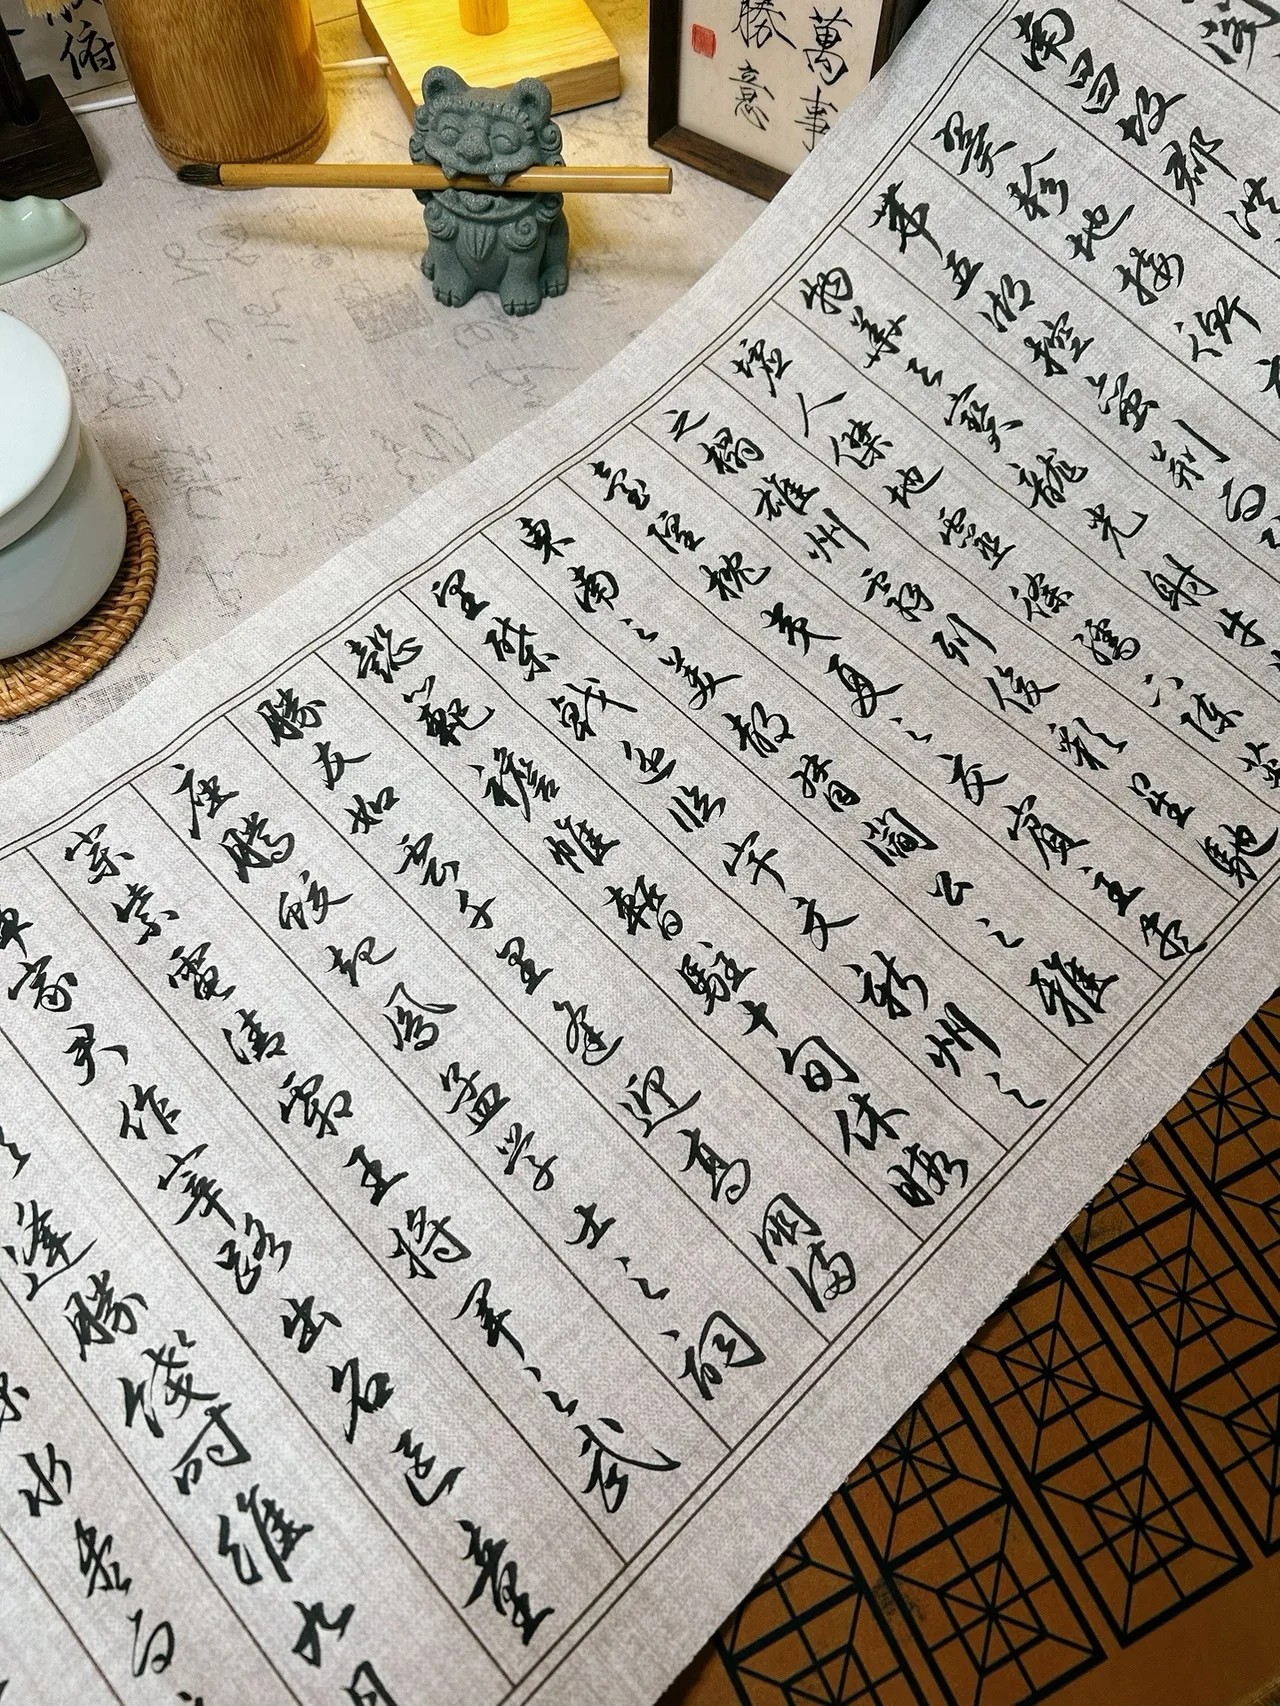 俯
萬事
勝意
南昌故郡洪
翼軫地接衡
帶五湖控蛮荆而
物華天寳龍光射牛
墟人傑地靈徐孺下陳蕃
之榻雄州霧列俊彩星馳
臺隍枕夷夏之交賓主盡
東南之美都督閻公之雅
望棨戟遥临宇文新州之
懿範襜帷暫駐十旬休暇
勝友如雲千里逢迎高朋滿
座騰蛟起鳳孟学士之詞
宗紫電清霜王将軍之武
庫家君作宰路出名区童
逢勝餞时維九月
水尽而